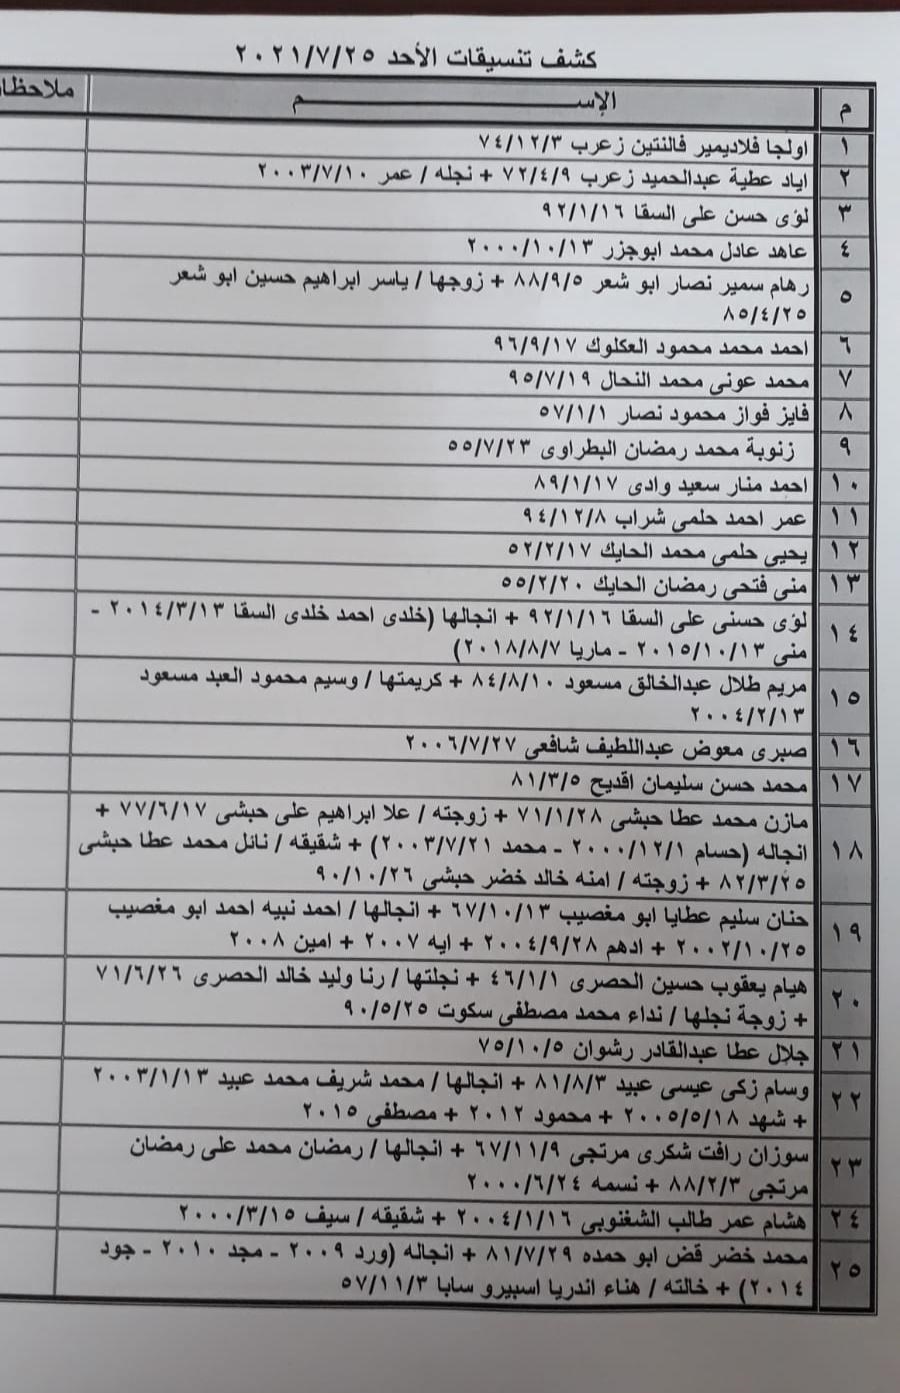 كشف تنسيقات الأحد ٢٠٢١/٧/٢٥
م الإســـــــــــــم ملاحظا
١ اولجا فلاديمير فالنتين زعرب ٧٤/١٢/٣
٢ اياد عطية عبدالحميد زعرب ٧٢/٤/٩ + نجله / عمر ٢٠٠٣/٧/١٠
٣ لؤى حسن على السقا ٩٢/١/١٦
٤ عاهد عادل محمد ابوجزر ٢٠٠٠/١٠/١٣
٥ رهام سمير نصار ابو شعر ٨٨/٩/٥ + زوجها / ياسر ابراهيم حسين ابو شعر
٨٥/٤/٢٥
٦ احمد محمد محمود العكلوك ٩٦/٩/١٧
٧ محمد عونى محمد النحال ٩٥/٧/١٩
٨ فايز فواز محمود نصار ٥٧/١/١
٩ زنوبة محمد رمضان البطراوى ٥٥/٧/٢٣
١٠ احمد منار سعيد وادى ٨٩/١/١٧
١١ عمر احمد حلمى شراب ٩٤/١٢/٨
١٢ يحيى حلمى محمد الحايك ٥٢/٢/١٧
١٣ منى فتحى رمضان الحايك ٥٥/٢/٢٠
١٤ لؤى حسنى على السقا ٩٢/١/١٦ + انجالها (خلدى احمد خلدى السقا ٢٠١٤/٣/١٣ -
منى ٢٠١٥/١٠/١٣ - ماريا ٢٠١٨/٨/٧)
١٥ مريم طلال عبدالخالق مسعود ٨٤/٨/١٠ + كريمتها / وسيم محمود العبد مسعود
٢٠٠٤/٢/١٣
١٦ صبرى معوض عبداللطيف شافعى ٢٠٠٦/٧/٢٧
١٧ محمد حسن سليمان اقديح ٨١/٣/٥
١٨ مازن محمد عطا حبشى ٧١/١/٢٨ + زوجته / علا ابراهيم على حبشى ٧٧/٦/١٧ +
انجاله (حسام ٢٠٠٠/١٢/١ - محمد ٢٠٠٣/٧/٢١) + شقيقه / نائل محمد عطا حبشى
٨٢/٣/٢٥ + زوجته / امنه خالد خضر حبشى ٩٠/١٠/٢٦
١٩ حنان سليم عطايا ابو مغصيب ٦٧/١٠/١٣ + انجالها / احمد نبيه احمد ابو مغصيب
٢٠٠٢/١٠/٢٥ + ادهم ٢٠٠٤/٩/٢٨ + ايه ٢٠٠٧ + امين ٢٠٠٨
٢٠ هيام يعقوب حسين الحصرى ٤٦/١/١ + نجلتها / رنا وليد خالد الحصرى ٧١/٦/٢٦
+ زوجة نجلها / نداء محمد مصطفى سكوت ٩٠/٥/٢٥
٢١ جلال عطا عبدالقادر رشوان ٧٥/١٠/٥
٢٢ وسام زكى عيسى عبيد ٨١/٨/٣ + انجالها / محمد شريف محمد عبيد ٢٠٠٣/١/١٣
+ شهد ٢٠٠٥/٥/١٨ + محمود ٢٠١٢ + مصطفى ٢٠١٥
٢٣ سوزان رافت شكرى مرتجى ٦٧/١١/٩ + انجالها / رمضان محمد على رمضان
مرتجى ٨٨/٢/٣ + نسمه ٢٠٠٠/٦/٢٤
٢٤ هشام عمر طالب الشغنوبى ٢٠٠٤/١/١٦ + شقيقه / سيف ٢٠٠٠/٣/١٥
٢٥ محمد خضر قض ابو حمده ٨١/٧/٢٩ + انجاله (ورد ٢٠٠٩ - مجد ٢٠١٠ - جود
٢٠١٤) + خالته / هناء اندريا اسبيرو سابا ٥٧/١١/٣